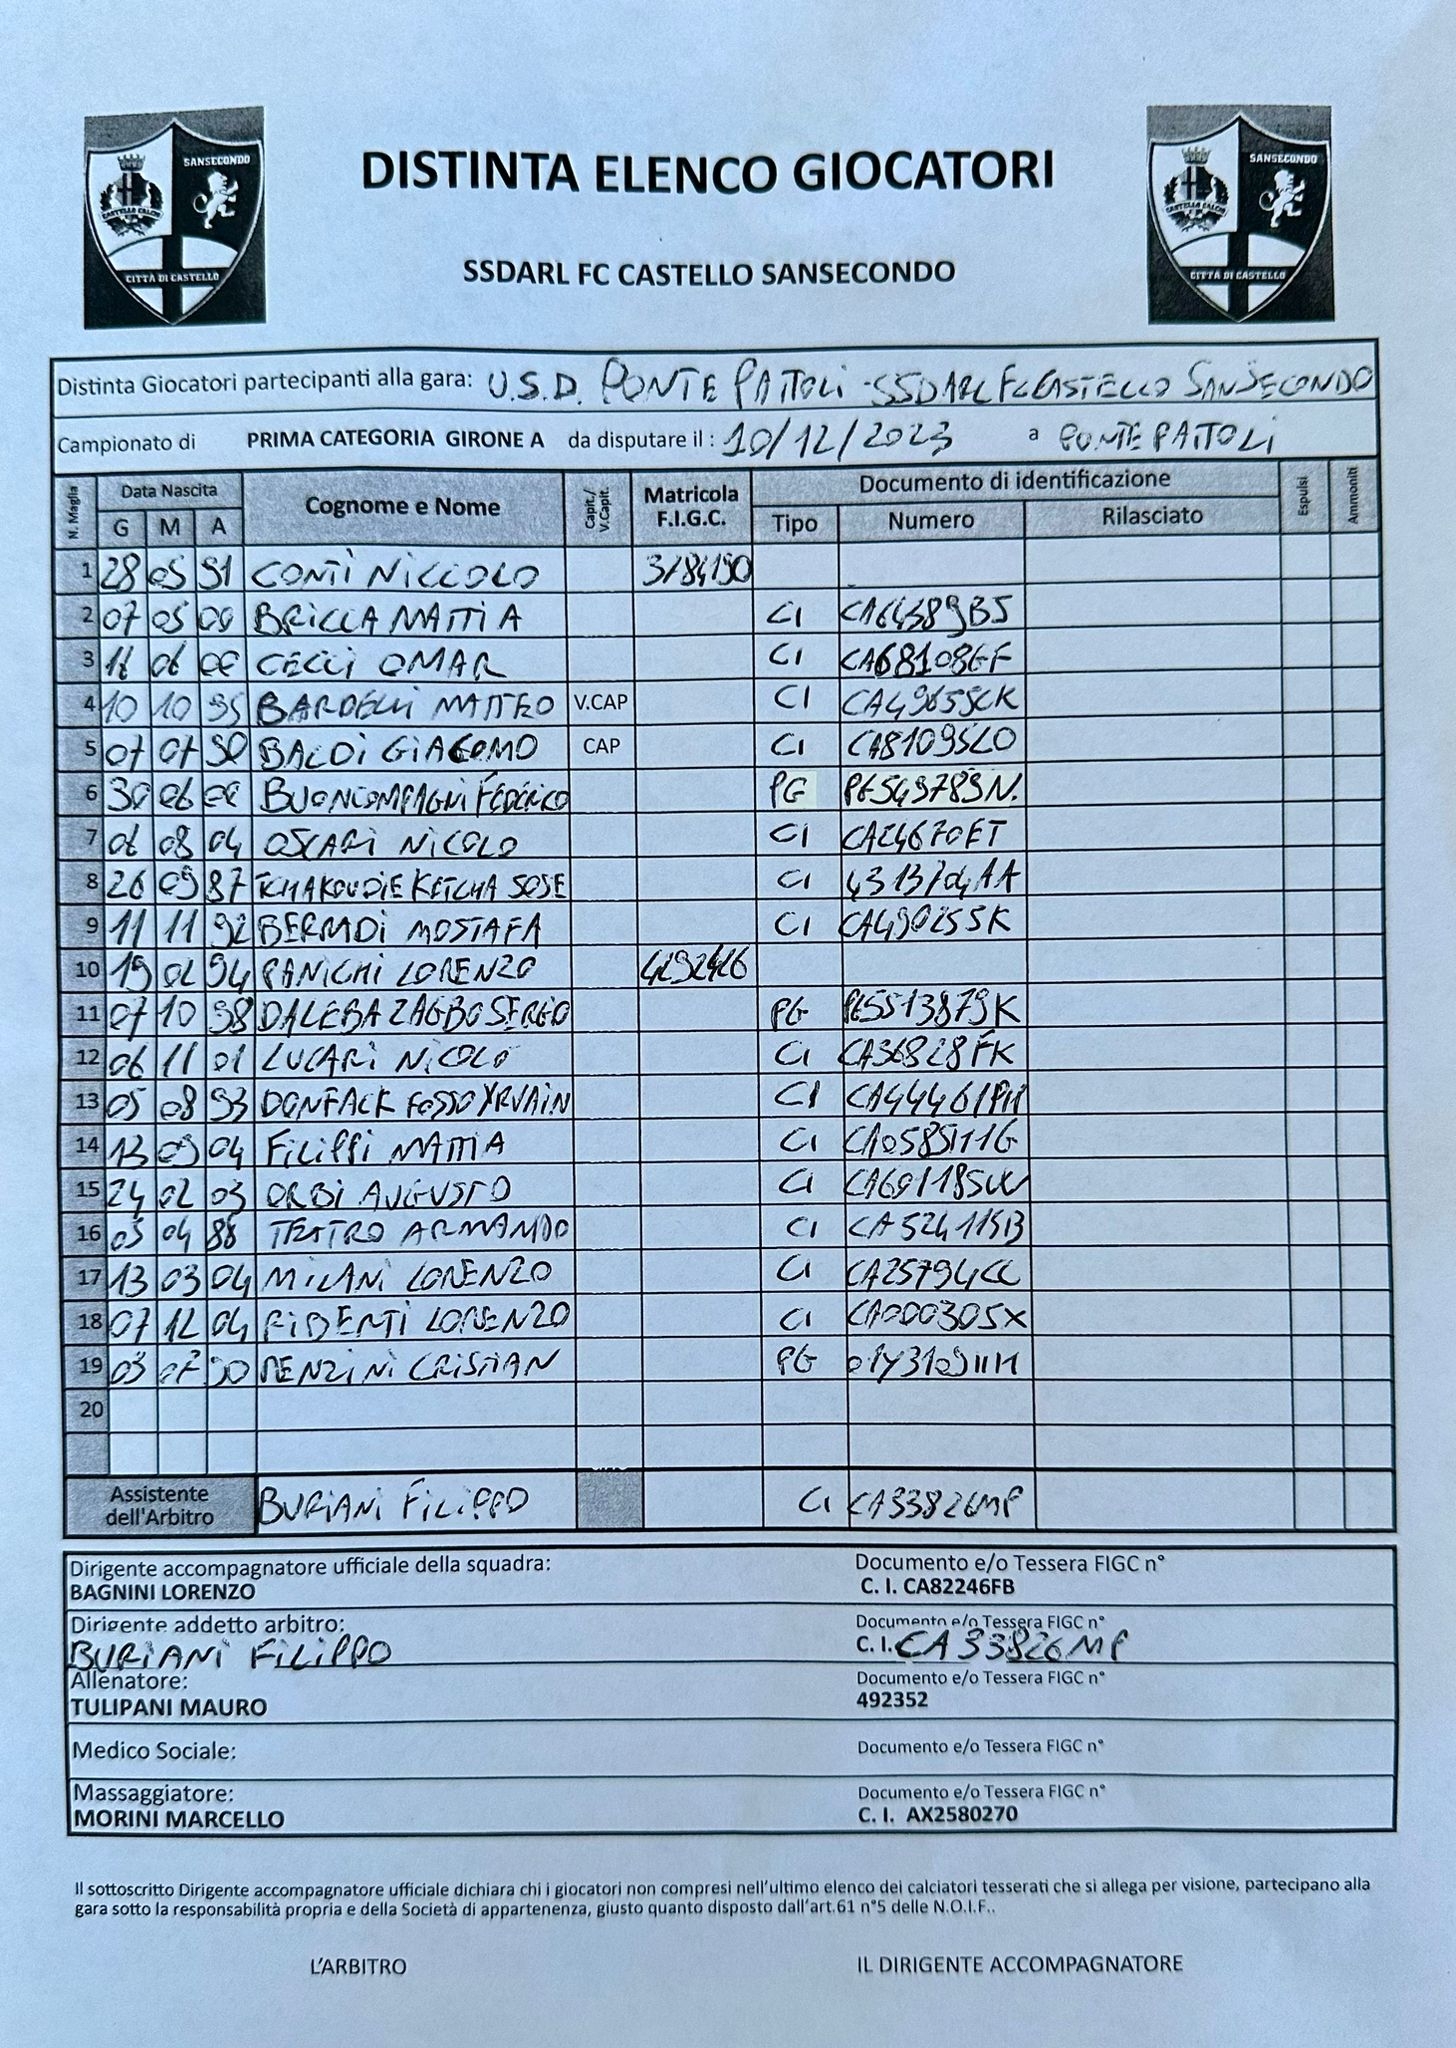 SANSECONDO
CASTELLO CALCIO
CITTÀ DI CASTELLO
DISTINTA ELENCO GIOCATORI
SANSECONDO
CASTELLO CALCIO
CITTÀ DI CASTELLO
SSDARL FC CASTELLO SANSECONDO
Distinta Giocatori partecipanti alla gara: U.S.D. PONTE PATTOLI - SSDARL FC CASTELLO SANSECONDO
Campionato di PRIMA CATEGORIA GIRONE A da disputare il : 10/12/2023 a PONTE PATTOLI
N. Maglia Data Nascita Cognome e Nome Capit./ V.Capit. Matricola F.I.G.C. Documento di identificazione Espulsi Ammoniti
G M A Tipo Numero Rilasciato
1 28 05 91 CONTI NICCOLO 3784190
2 07 05 00 BRILLA MATTIA CI CA64389BJ
3 06 00 CECCI OMAR CI CA68108GF
4 10 10 95 BARDELLI MATTEO V.CAP CI CA49655CK
5 07 07 90 BALDI GIACOMO CAP CI CA81095LO
6 30 06 00 BUONCOMPAGNI FEDERICO PG PG5497839N.
7 06 08 04 OSCARI NICOLO CI CA24670ET
8 26 09 87 TCHAKOUDIE KETCHA JOSE CI 4313704AA
9 11 11 92 BERRADI MOSTAFA CI CA49025SK
10 19 02 94 PANICHI LORENZO 4292426
11 07 10 98 DALEBA ZAGBO SERGIO PG PG5513879K
12 06 11 01 LUCARI NICOLO CI CA36828FK
13 05 08 93 DONFACK FOSSO YRVAIN CI
14 13 09 04 FILIPPI MATTIA CI CA05851IG
15 24 02 03 ORBI AUGUSTO CI
16 05 04 88 TEATRO ARMANDO CI CA52411SB
17 13 03 04 MILANI LORENZO CI CA25794CC
18 07 12 04 RIDENTI LORENZO CI CA00030SX
19 03 07 90 RENZINI CRISTIAN PG
20
Assistente dell'Arbitro BURIANI FILIPPO CI CA33826MP
Dirigente accompagnatore ufficiale della squadra: Documento e/o Tessera FIGC n°
BAGNINI LORENZO C. I. CA82246FB
Dirigente addetto arbitro: Documento e/o Tessera FIGC n°
BURIANI FILIPPO C. I. CA33826MP
Allenatore: Documento e/o Tessera FIGC n°
TULIPANI MAURO 492352
Medico Sociale: Documento e/o Tessera FIGC n°
Massaggiatore: Documento e/o Tessera FIGC n°
MORINI MARCELLO C. I. AX2580270
Il sottoscritto Dirigente accompagnatore ufficiale dichiara chi i giocatori non compresi nell'ultimo elenco dei calciatori tesserati che si allega per visione, partecipano alla
gara sotto la responsabilità propria e della Società di appartenenza, giusto quanto disposto dall'art.61 n°5 delle N.O.I.F..
L'ARBITRO IL DIRIGENTE ACCOMPAGNATORE